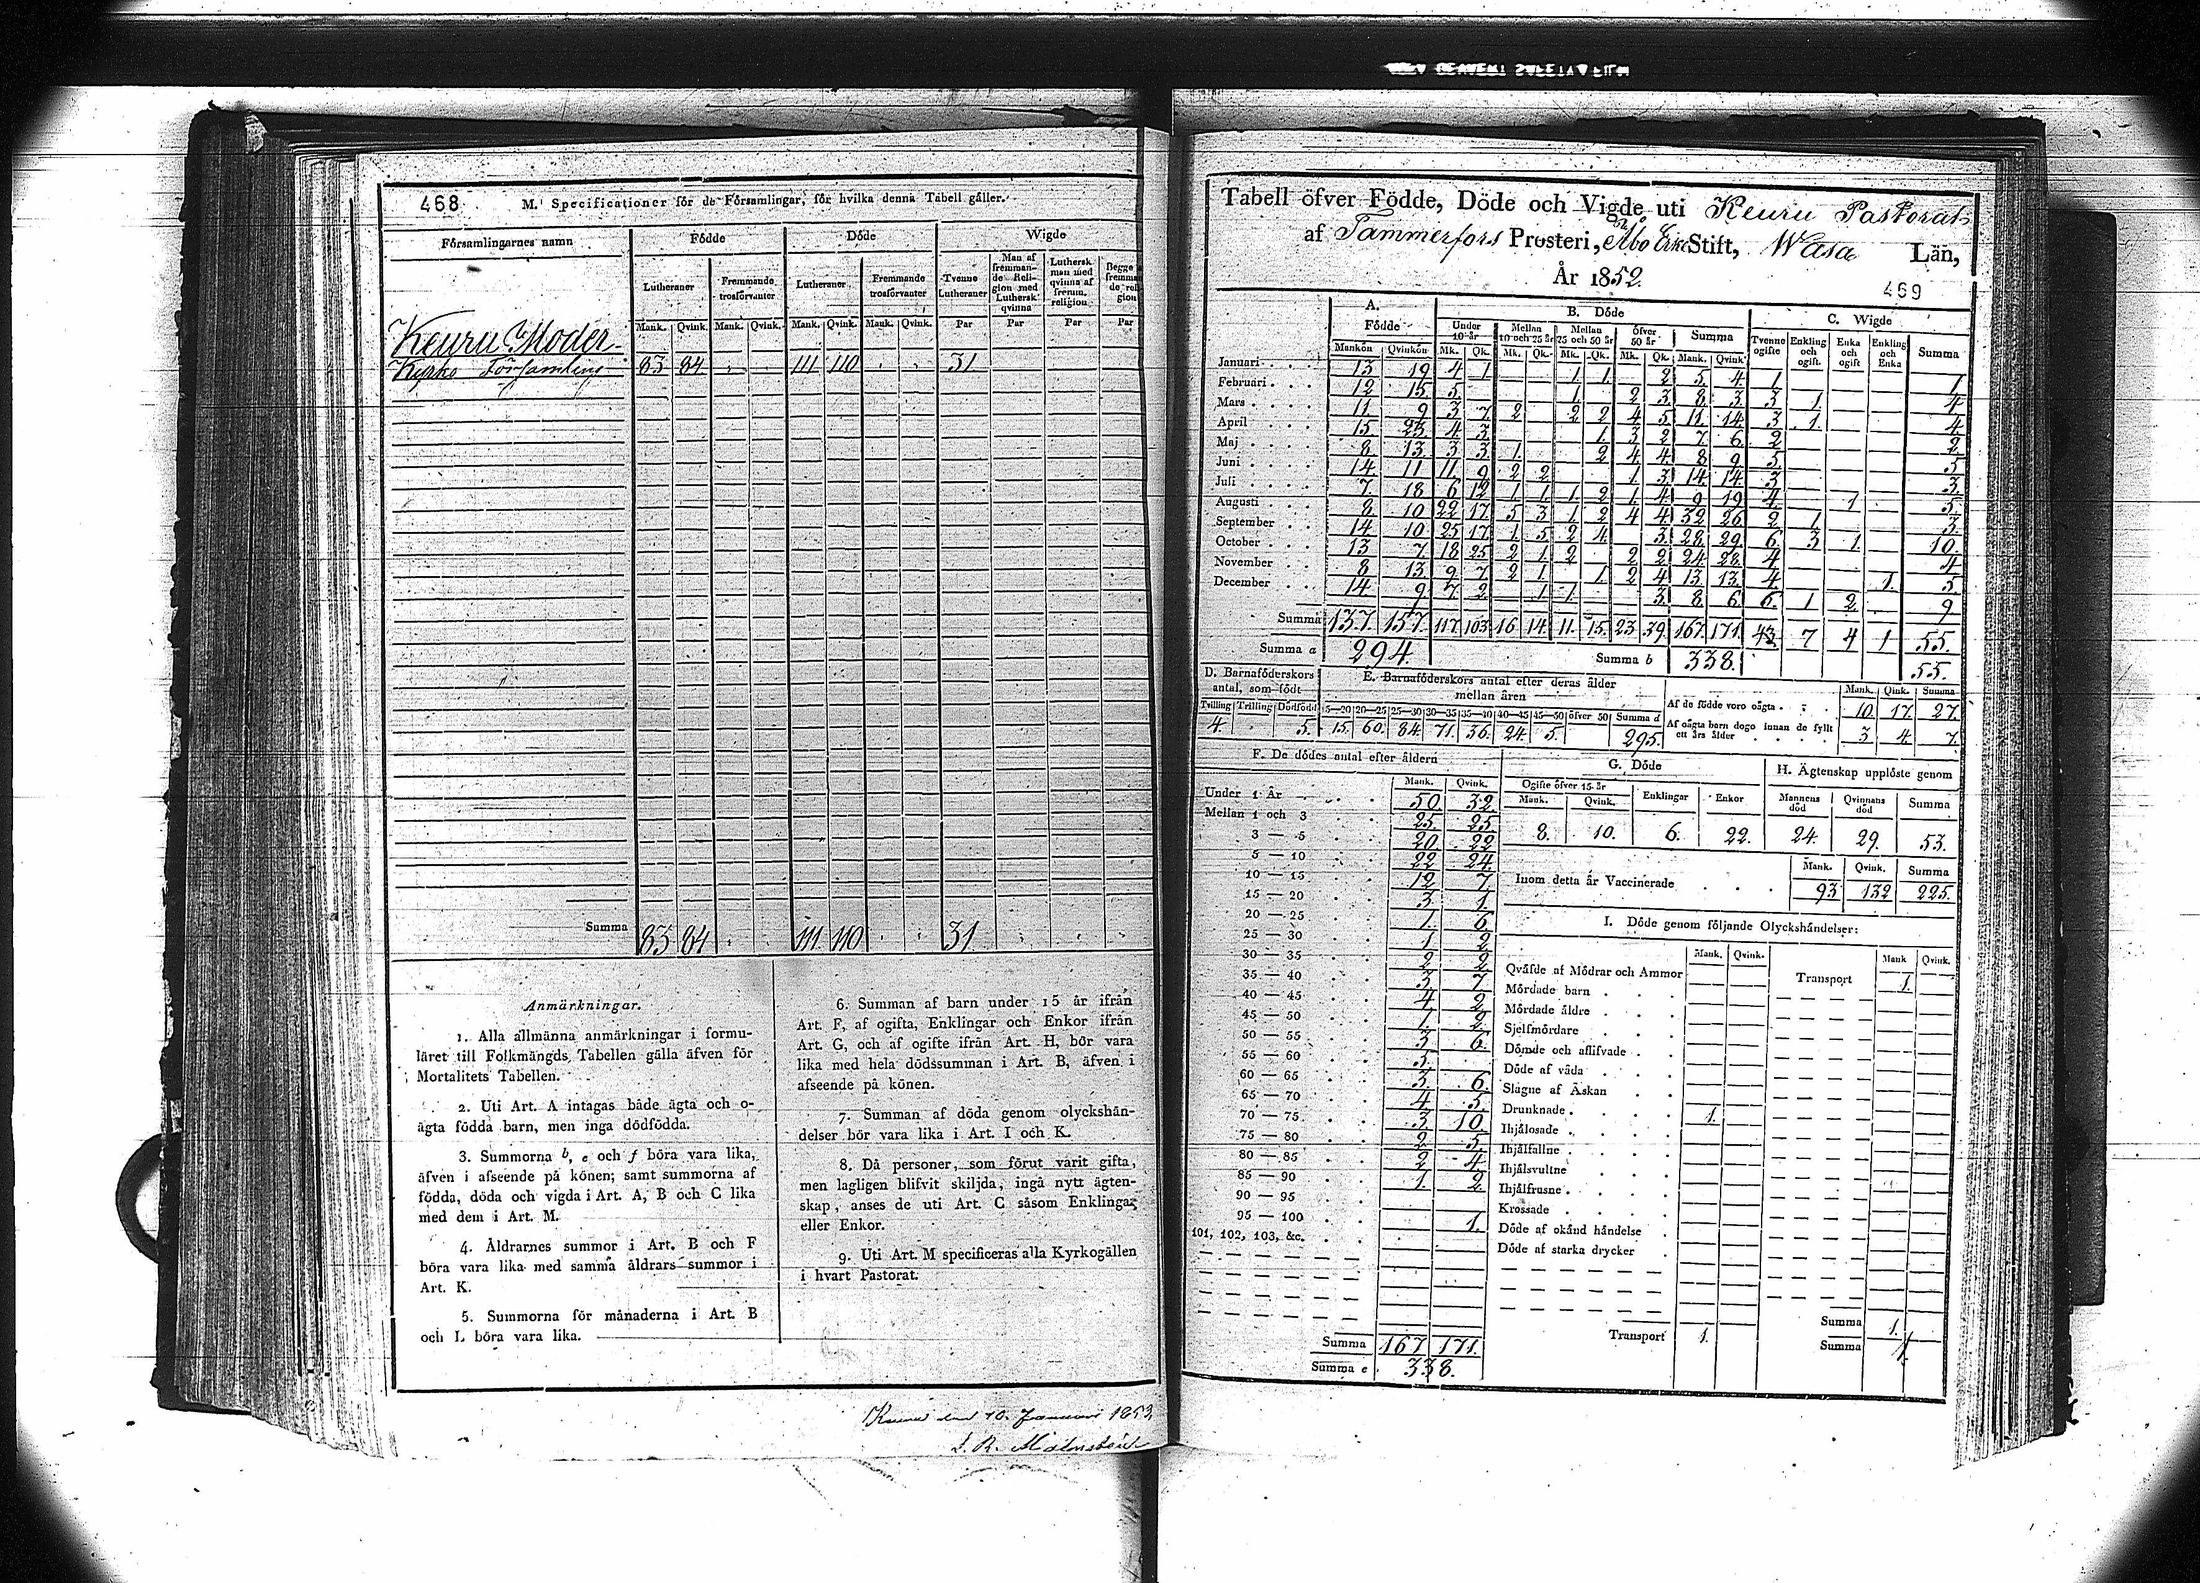 468
M. Specificationer för de Församlingar, för hvilka denna Tabell gäller.
Församlingarnes namn | Födde | Döde | Wigde
Lutheraner | Fremmande trosförvanter | Lutheraner | Fremmande trosförvanter | Tvenne Lutheraner | Man af fremmande Religion med Luthersk qvinna | Luthersk man med qvinna af fremm. religion | Begge fremmande religion
Mank. | Qvink. | Mank. | Qvink. | Mank. | Qvink. | Mank. | Qvink. | Par | Par | Par | Par
Keuru Moder
Kyrko Församling | 83 | 84 | 111 | 110 | 31
Summa | 83 | 84 | 111 | 110 | 31
Anmärkningar.
1. Alla allmänna anmärkningar i formu-
läret till Folkmängds Tabellen gälla äfven för
Mortalitets Tabellen.
2. Uti Art. A intagas både ägta och o-
ägta födda barn, men inga dödfödda.
3. Summorna b, e och f böra vara lika,
äfven i afseende på könen; samt summorna af
födda, döda och vigda i Art. A, B och C lika
med dem i Art. M.
4. Åldrarnes summor i Art. B och F
böra vara lika med samma åldrars summor i
Art. K.
5. Summorna för månaderna i Art. B
och L böra vara lika.
6. Summan af barn under 15 år ifrån
Art. F, af ogifta, Enklingar och Enkor ifrån
Art. G, och af ogifte ifrån Art. H, bör vara
lika med hela dödssumman i Art. B, äfven i
afseende på könen.
7. Summan af döda genom olyckshän-
delser bör vara lika i Art. I och K.
8. Då personer, som förut varit gifta,
men lagligen blifvit skiljda, ingå nytt ägten-
skap, anses de uti Art. C såsom Enklingar
eller Enkor.
9. Uti Art. M specificeras alla Kyrkogällen
i hvart Pastorat.
den 10. Januari 1853
Tabell öfver Födde, Döde och Vigde uti Keuru Pastorat
af Tammerfors Prosteri, Åbo Erke Stift, Wasa Län,
År 1852.
469
A. Födde | B. Döde | C. Wigde
Under 10 år | Mellan 10 och 25 år | Mellan 25 och 50 år | öfver 50 år | Summa | Tvenne ogifte | Enkling och ogift. | Enka och ogift | Enkling och Enka | Summa
Mankön | Qvinkön | Mk. | Qk. | Mk. | Qk. | Mk. | Qk. | Mk. | Qk. | Mank. | Qvink.
Januari | 13 | 19 | 4 | 1 | 1 | 1 | 2 | 5 | 4 | 1 | 1
Februari | 12 | 15 | 5 | 1 | 2 | 3 | 8 | 3 | 3 | 1 | 4
Mars | 11 | 9 | 3 | 7 | 2 | 2 | 2 | 4 | 5 | 11 | 14 | 3 | 1 | 4
April | 15 | 23 | 4 | 3 | 1 | 3 | 2 | 7 | 6 | 2 | 2
Maj | 8 | 13 | 3 | 3 | 1 | 2 | 4 | 4 | 8 | 9 | 5 | 5
Juni | 14 | 11 | 11 | 9 | 2 | 2 | 1 | 3 | 14 | 14 | 3 | 3
Juli | 7 | 18 | 6 | 12 | 1 | 1 | 1 | 2 | 1 | 4 | 9 | 19 | 4 | 1 | 5
Augusti | 8 | 10 | 22 | 17 | 5 | 3 | 1 | 2 | 4 | 4 | 32 | 26 | 2 | 1 | 3
September | 14 | 10 | 25 | 17 | 1 | 5 | 2 | 4 | 3 | 28 | 29 | 6 | 3 | 1 | 10
October | 13 | 7 | 18 | 25 | 2 | 1 | 2 | 2 | 2 | 24 | 28 | 4 | 4
November | 8 | 13 | 9 | 7 | 2 | 1 | 1 | 2 | 4 | 13 | 13 | 4 | 1 | 5
December | 14 | 9 | 7 | 2 | 1 | 1 | 3 | 8 | 6 | 6 | 1 | 2 | 9
Summa | 137 | 157 | 117 | 103 | 16 | 14 | 11 | 15 | 23 | 39 | 167 | 171 | 43 | 7 | 4 | 1 | 55
Summa a | 294 | Summa b | 338 | 55
D. Barnaföderskors antal, som födt
Tvilling | Trilling | Dödfödd
4 | 5
E. Barnaföderskors antal efter deras ålder mellan åren
15—20 | 20—25 | 25—30 | 30—35 | 35—40 | 40—45 | 45—50 | öfver 50 | Summa d
15 | 60 | 84 | 71 | 36 | 24 | 5 | 295
Mank. | Qink. | Summa
Af de födde voro oägta | 10 | 17 | 27
Af oägta barn dogo innan de fyllt ett års ålder | 3 | 4 | 7
F. De dödes antal efter åldern
Mank. | Qvink.
Under 1 År | 50 | 32
Mellan 1 och 3 | 25 | 25
3 — 5 | 20 | 22
5 — 10 | 22 | 24
10 — 15 | 12 | 7
15 — 20 | 3 | 1
20 — 25 | 1 | 6
25 — 30 | 1 | 2
30 — 35 | 2 | 2
35 — 40 | 3 | 7
40 — 45 | 4 | 2
45 — 50 | 1 | 2
50 — 55 | 3 | 6
55 — 60 | 5
60 — 65 | 3 | 6
65 — 70 | 4 | 5
70 — 75 | 3 | 10
75 — 80 | 2 | 5
80 — 85 | 2 | 4
85 — 90 | 1 | 2
90 — 95
95 — 100 | 1
101, 102, 103, &c.
Summa | 167 | 171
Summa e | 338
G. Döde
Ogifte öfver 15 år | Enklingar | Enkor
Mank. | Qvink.
8 | 10 | 6 | 22
H. Ägtenskap upplöste genom
Mannens död | Qvinnans död | Summa
24 | 29 | 53
Mank. | Qvink. | Summa
Inom detta år Vaccinerade | 93 | 132 | 225
I. Döde genom följande Olyckshändelser:
Mank. | Qvink. | Mank | Qvink.
Qväfde af Mödrar och Ammor | Transport | 1
Mördade barn
Mördade äldre
Sjelfmördare
Dömde och aflifvade
Döde af våda
Slagne af Åskan
Drunknade | 1
Ihjälosade
Ihjälfallne
Ihjälsvultne
Ihjälfrusne
Krossade
Döde af okänd händelse
Döde af starka drycker
Transport | 1 | Summa | 1
Summa | 1